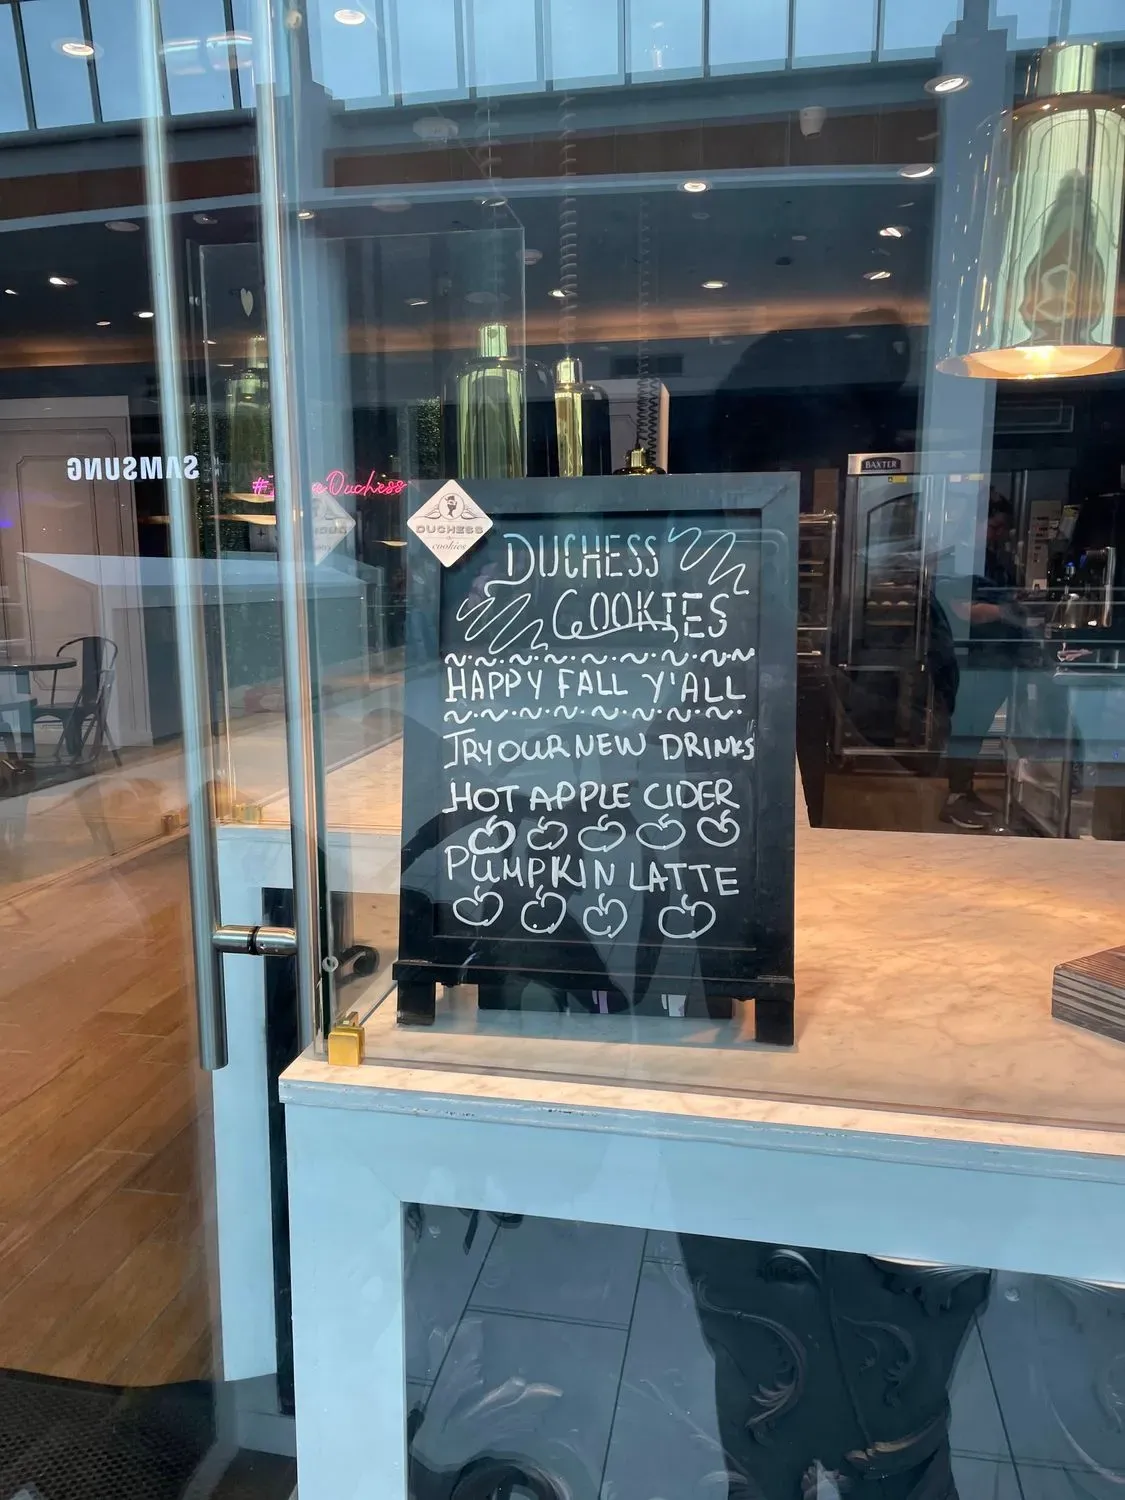 BAXTER
SAMSUNG
Duchess
DUCHESS
cookies
DUCHESS
COOKIES
HAPPY FALL Y'ALL
TRY OUR NEW DRINKS
HOT APPLE CIDER
PUMPKIN LATTE